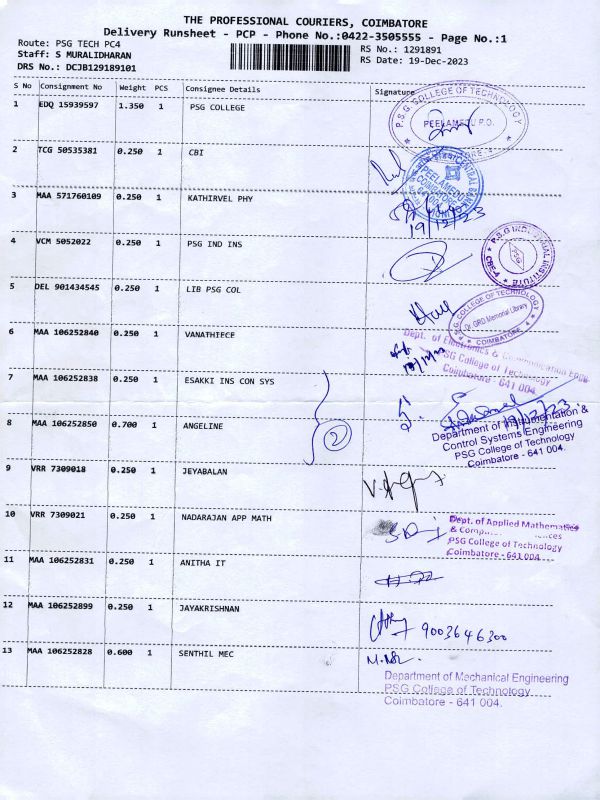 THE PROFESSIONAL COURIERS, COIMBATORE
Delivery Runsheet - PCP - Phone No.:0422-3505555 - Page No.:1
Route: PSG TECH PC4
Staff: S MURALIDHARAN
DRS No.: DCJB129189101
RS No.: 1291891
RS Date: 19-Dec-2023
S No Consignment No Weight PCS Consignee Details Signature
1 EDQ 15939597 1.350 1 PSG COLLEGE
P.S.G. COLLEGE OF TECHNOLOGY
PEELAMEDU P.O.
2 TCG 50535381 0.250 1 CBI
PEELAMEDU
COIMBATORE
3 MAA 571760109 0.250 1 KATHIRVEL PHY
19/12/23
4 VCM 5052022 0.250 1 PSG IND INS
P.S.G INDUSTRIAL INSTITUTE
CBE-4
PSG
5 DEL 901434545 0.250 1 LIB PSG COL
P.S.G COLLEGE OF TECHNOLOGY
Dr. GRD Memorial Library
COIMBATORE
6 MAA 106252840 0.250 1 VANATHIECE
Dept. of Electronics & Communication Engg.
PSG College of Technology
Coimbatore - 641 004.
7 MAA 106252838 0.250 1 ESAKKI INS CON SYS
8 MAA 106252850 0.700 1 ANGELINE
2
19/12/23
Department of Instrumentation &
Control Systems Engineering
PSG College of Technology
Coimbatore - 641 004.
9 VRR 7309018 0.250 1 JEYABALAN
10 VRR 7309021 0.250 1 NADARAJAN APP MATH
Dept. of Applied Mathematics
&
PSG College of Technology
Coimbatore - 641 004
11 MAA 106252831 0.250 1 ANITHA IT
12 MAA 106252899 0.250 1 JAYAKRISHNAN
9003646300
13 MAA 106252828 0.600 1 SENTHIL MEC
Department of Mechanical Engineering
PSG College of Technology
Coimbatore - 641 004.